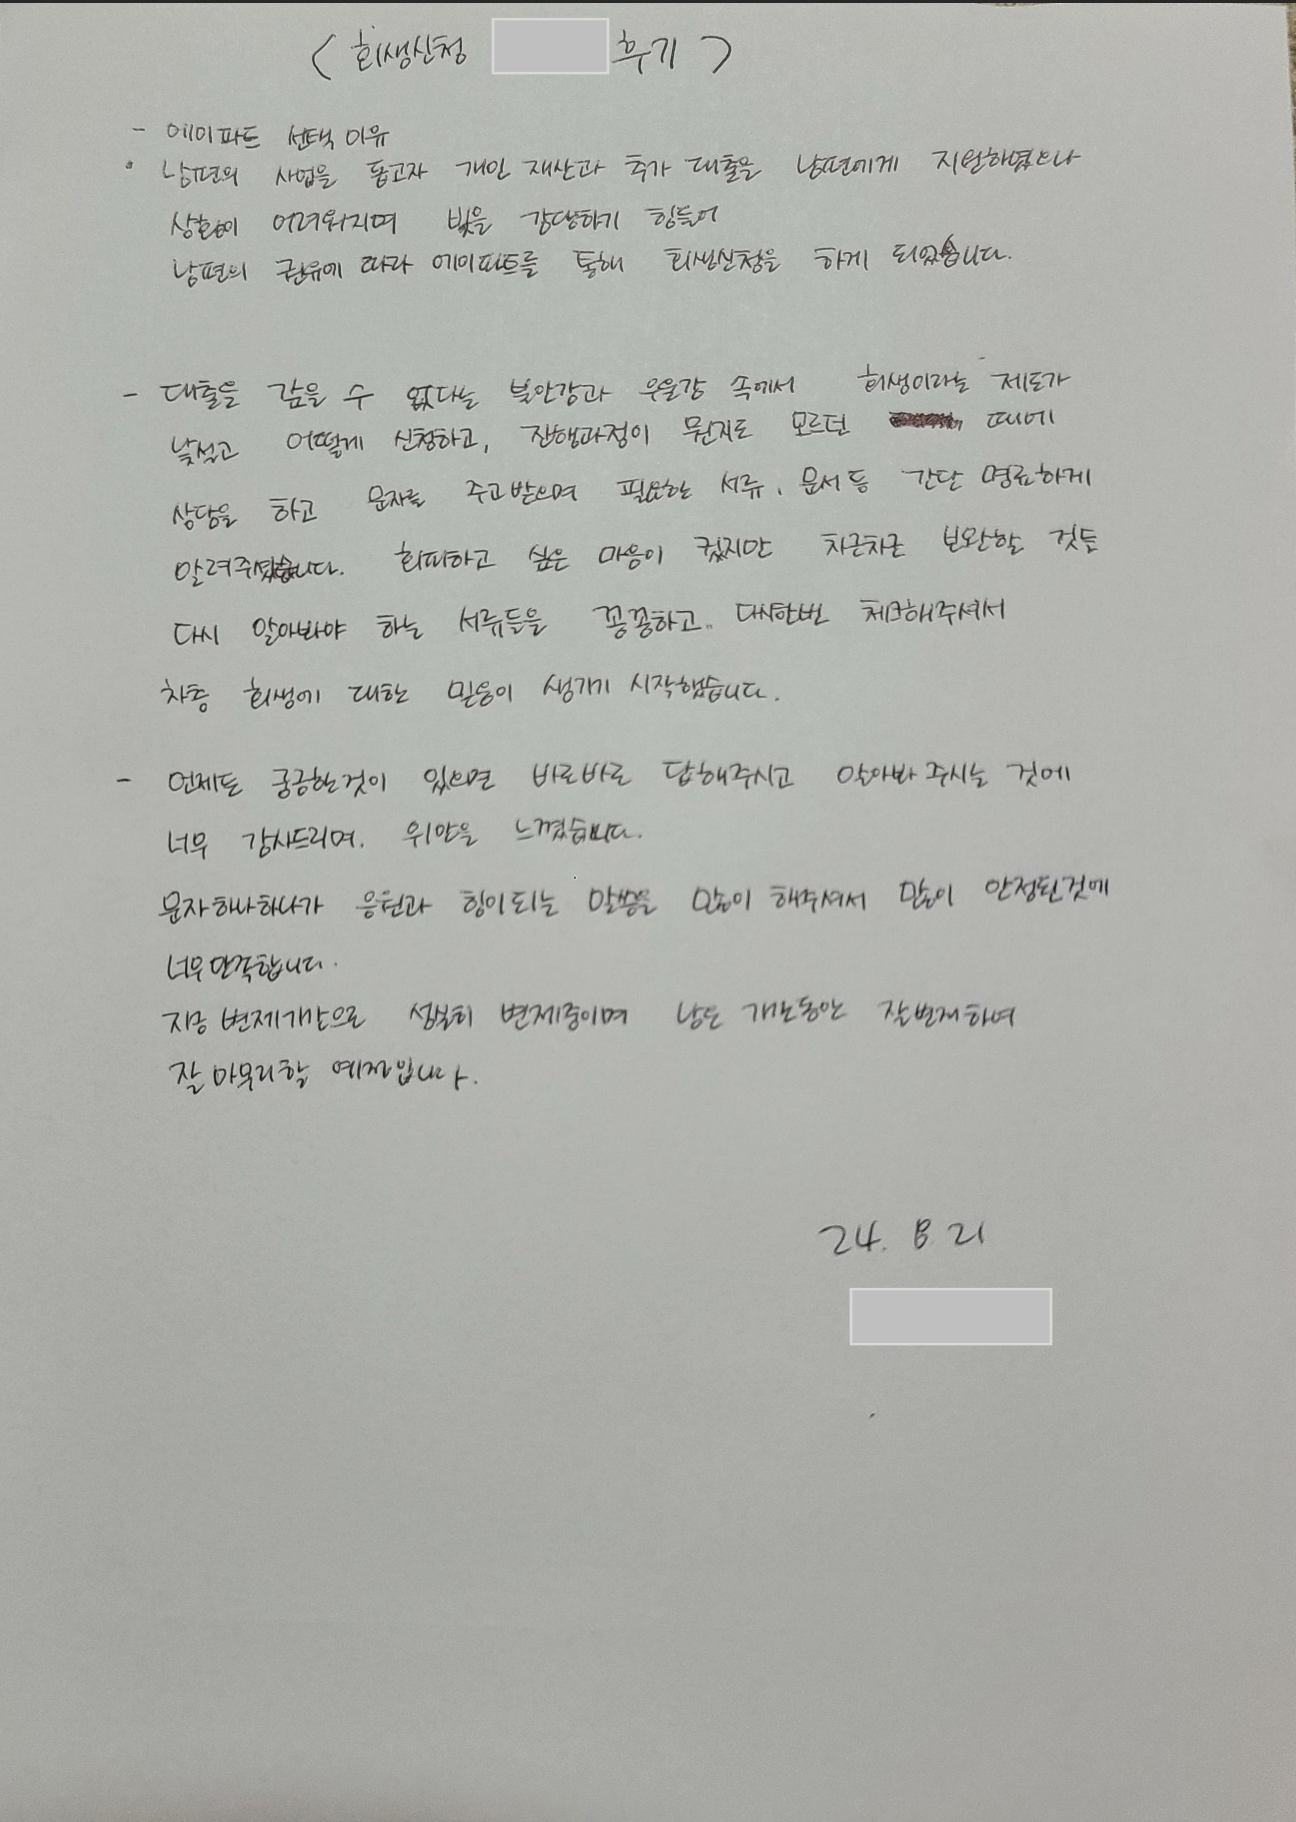 < 회생신청 후기 >
- 에이파트 선택 이유
• 남편의 사업을 돕고자 개인 재산과 추가 대출을 남편에게 지원하였으나
상황이 어려워지며 빚을 감당하기 힘들어
남편의 권유에 따라 에이파트를 통해 회생신청을 하게 되었습니다.
- 대출을 갚을 수 없다는 불안감과 우울감 속에서 회생이라는 제도가
낯설고 어떻게 신청하고, 진행과정이 뭔지도 모르던 때에
상담을 하고 문자를 주고받으며 필요한 서류, 문서 등 간단 명료하게
알려주셨습니다. 회피하고 싶은 마음이 컸지만 차근차근 보완할 것들
다시 알아봐야 하는 서류들을 꼼꼼하고.. 다시한번 체크해주셔서
차츰 회생에 대한 믿음이 생기기 시작했습니다.
- 언제든 궁금한것이 있으면 바로바로 답해주시고 알아봐 주시는 것에
너무 감사드리며. 위안을 느꼈습니다.
문자하나하나가 응원과 힘이되는 말씀을 많이 해주셔서 많이 안정된것에
너무만족합니다.
지금 변제기간으로 성실히 변제중이며 남은 기간동안 잘변제하여
잘 마무리할 예정입니다.
24. 8. 21